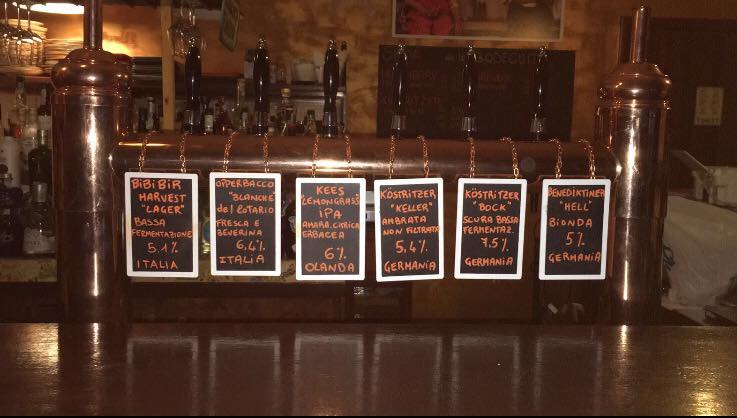 BiBiBiR
HARVEST
"LAGER"
BASSA
FERMENTAZIONE
5.1%
ITALIA
OPPERBACCO
"BLANCHE"
del Lotario
FRESCA E
BEVERINA
6,4%
ITALIA
KEES
LEMONGRASS
iPA
AMARA.CITRICA
ERBACEA
6%
OLANDA
KÖSTRITZER
"KELLER"
AMBRATA
NON FILTRATA
5,4%
GERMANIA
KÖSTRITZER
"BOCK"
SCURA BASSA
FERMENTAZ.
7,5%
GERMANIA
BENEDIKTINER
"HELL"
BIONDA
5%
GERMANIA